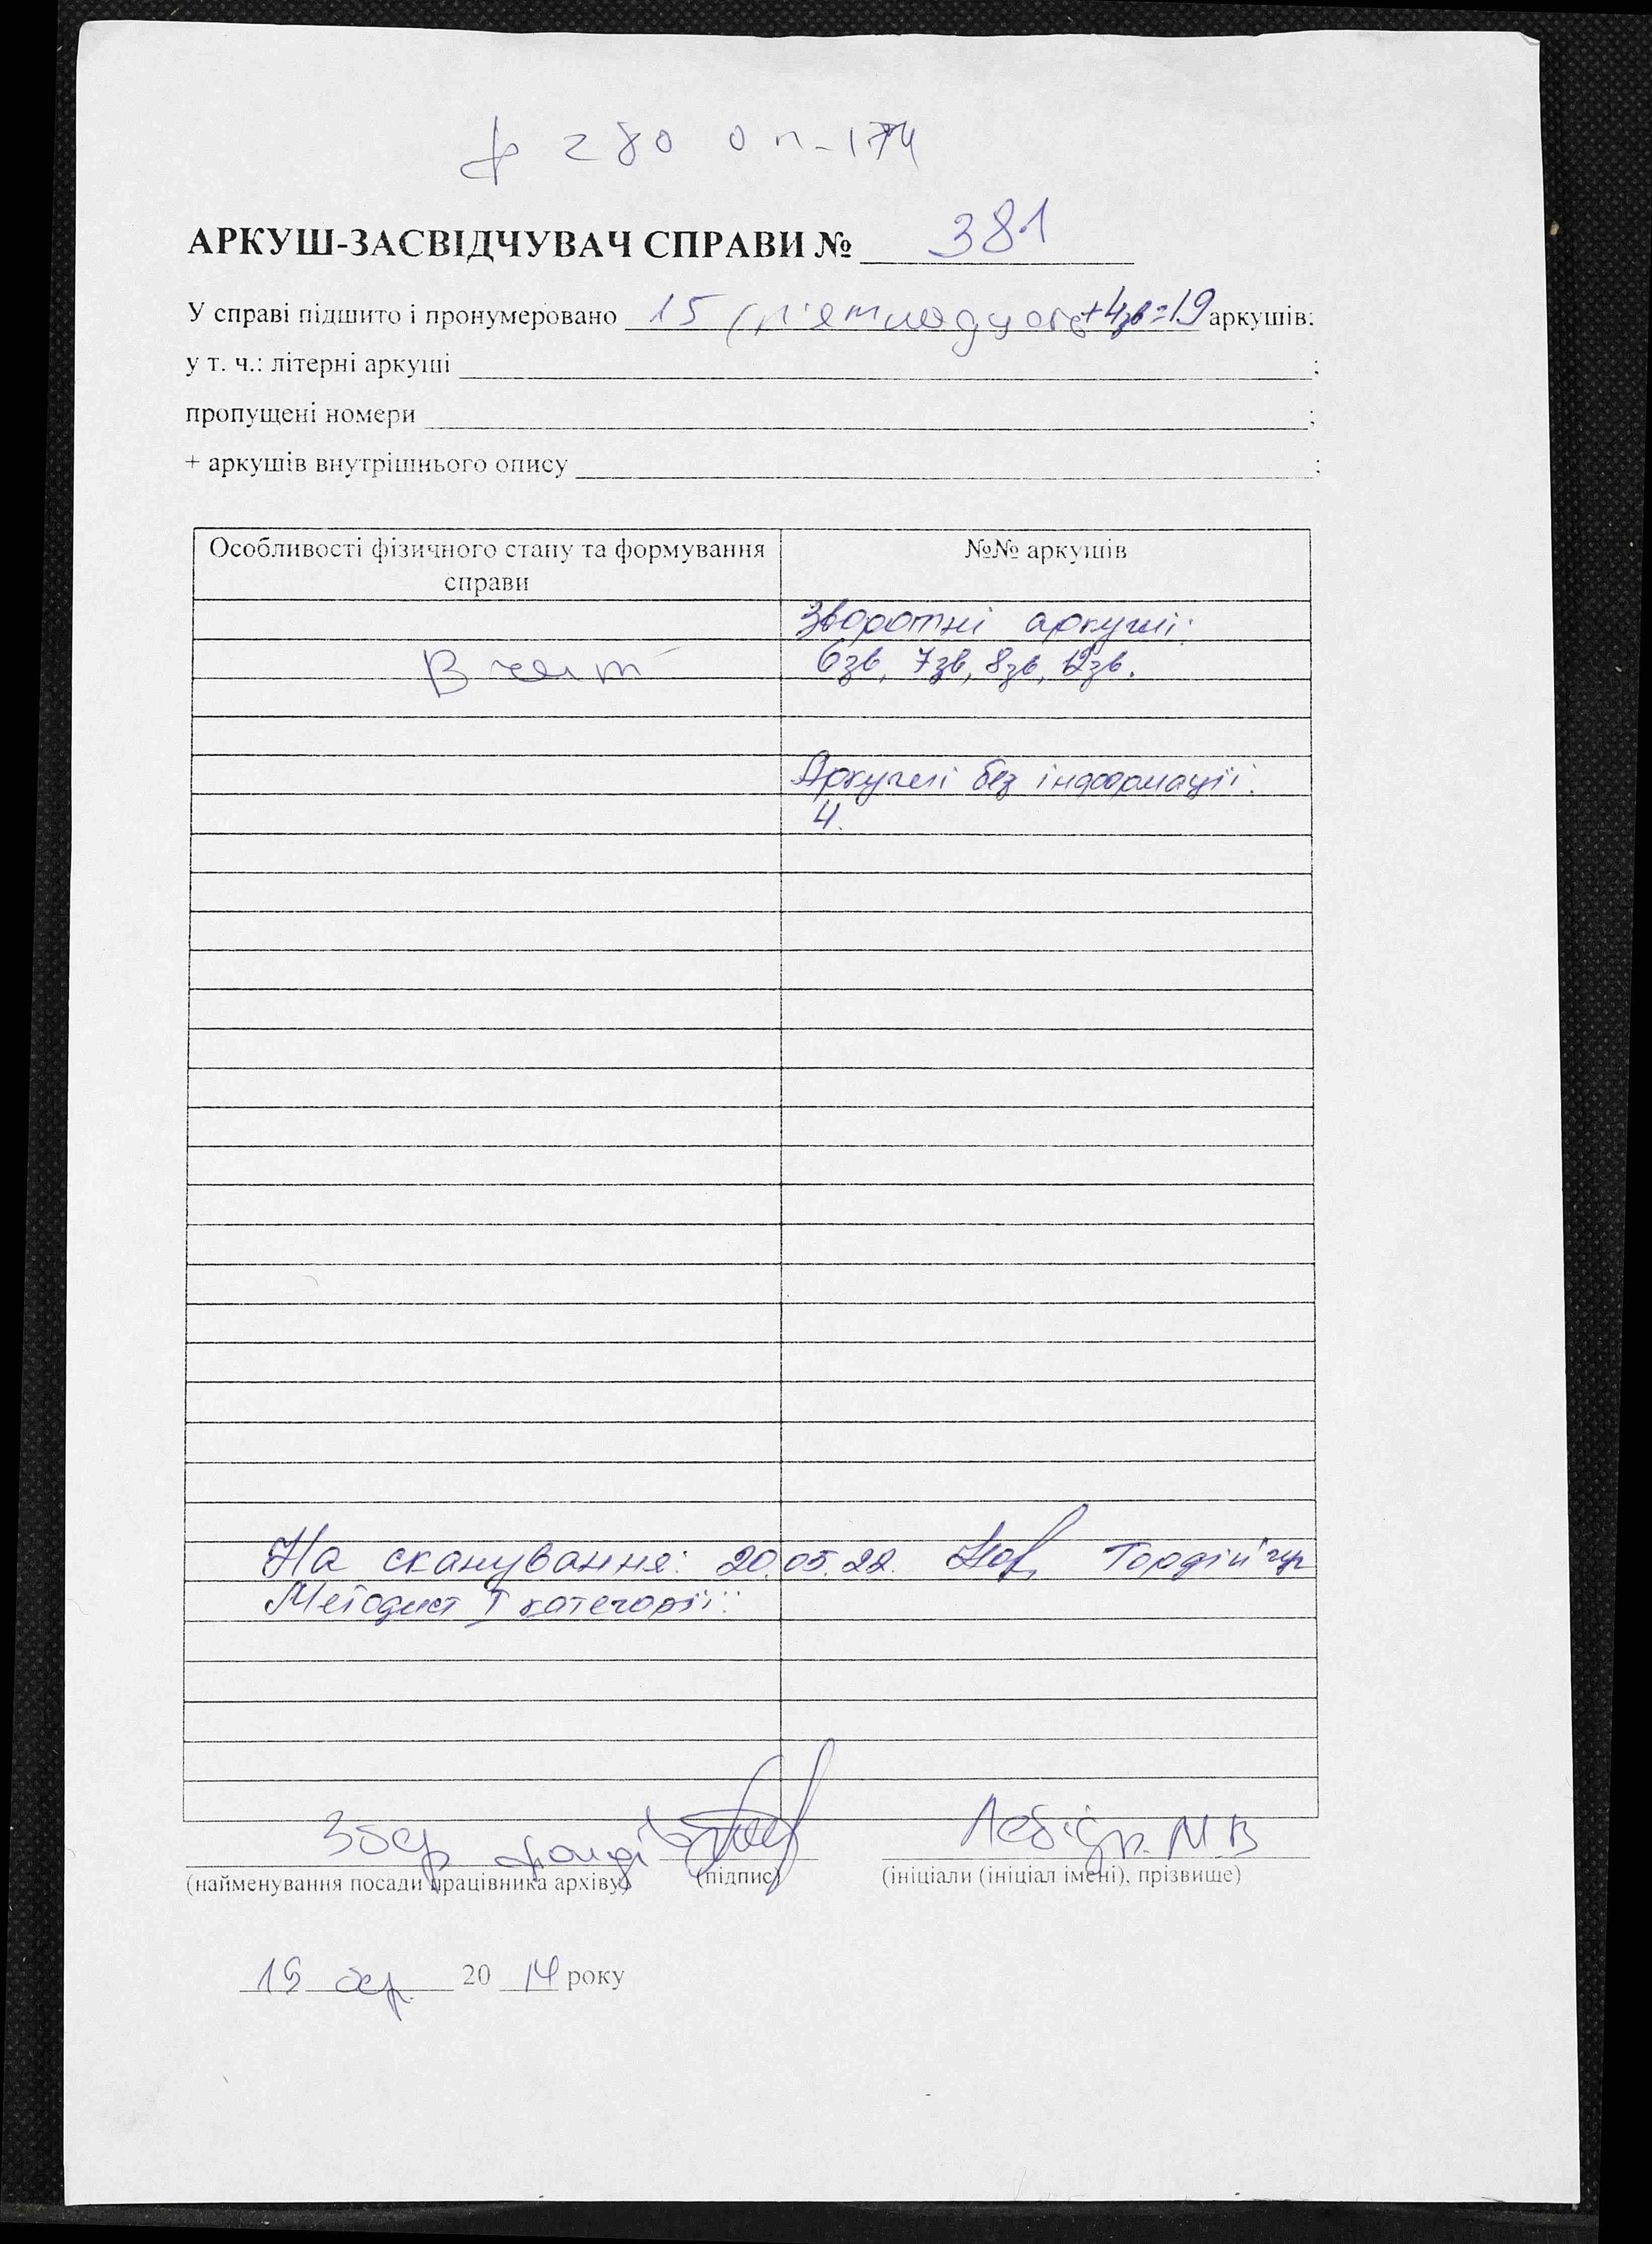 ф 280 оп-174
АРКУШ-ЗАСВІДЧУВАЧ СПРАВИ № 381
У справі підшито і пронумеровано 15 (п'ятнадцять +4зв=19 аркушів;
у т. ч.: літерні аркуші ;
пропущені номери ;
+ аркушів внутрішнього опису ;
Особливості фізичного стану та формування справи
№№ аркушів
Зворотні аркуші:
6зв, 7зв, 8зв, 12зв.
Аркуші без інформації:
4.
На сканування: 20.05.22. Гордійчук
Методист I категорії:
Збер фонді
(найменування посади працівника архіву)
(підпис)
Лебідь М В
(ініціали (ініціал імені), прізвище)
20 14 року